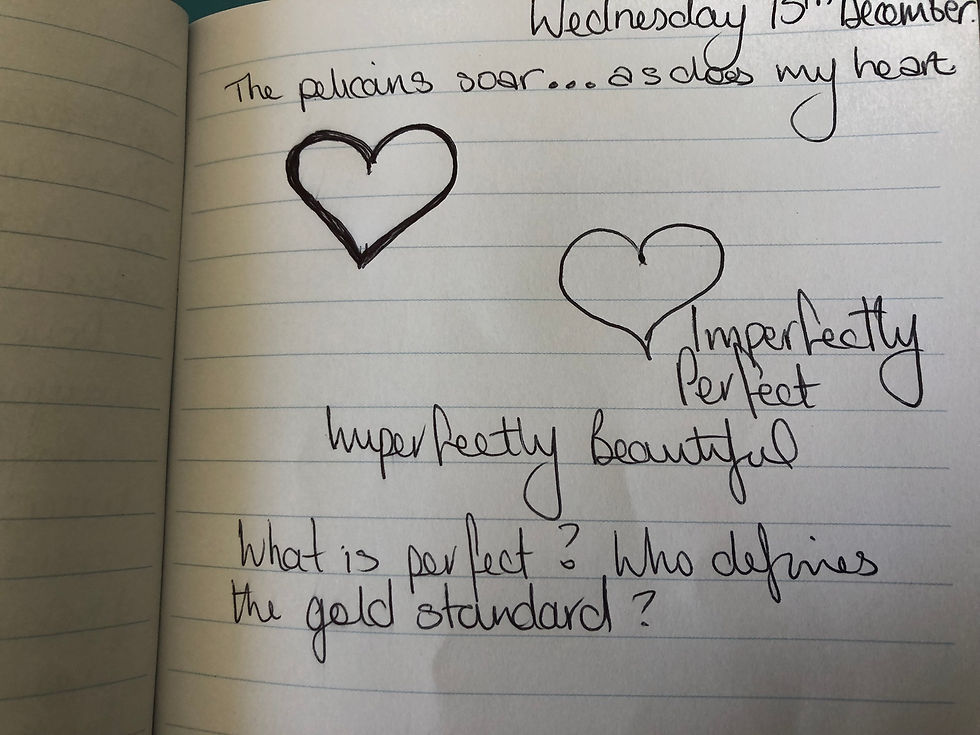 Wednesday 15th December
The pelicans soar... as does my heart
Imperfectly
Perfect
Imperfectly Beautiful
What is perfect? Who defines
the gold standard?